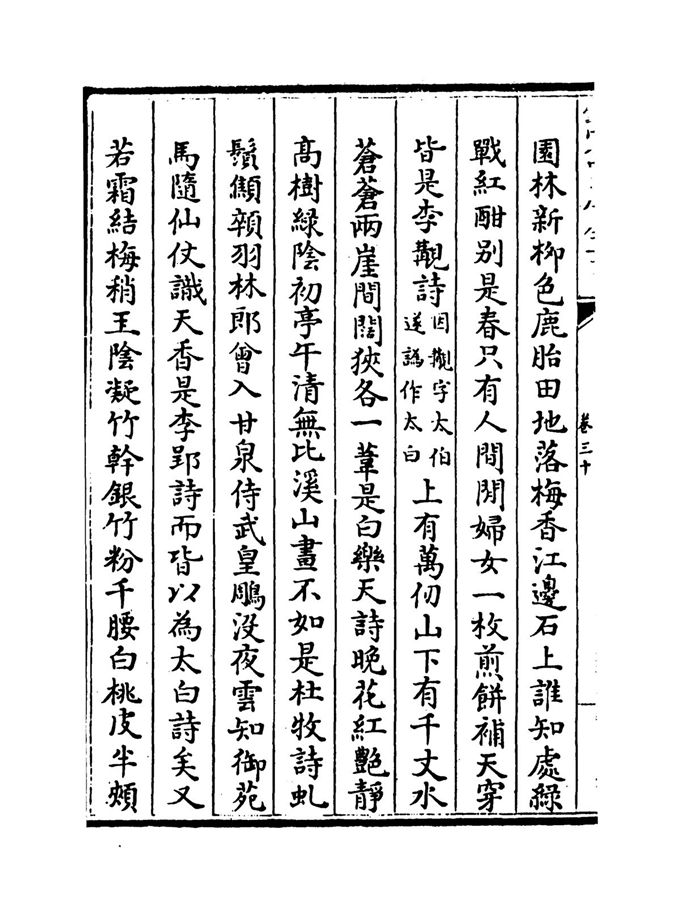 園林新柳色鹿胎田地落梅香江邊石上誰知處綠
戰紅酣别是春只有人間閒婦女一枚煎餅補天穿
皆是李覯詩因覯字太伯遂譌作太白上有萬仞山下有千丈水
蒼蒼兩崖間闊狹各一葦是白樂天詩晩花紅艷靜
髙樹綠陰初亭午清無比溪山畫不如是杜牧詩虬
鬚顑頷羽林郎曾入甘泉侍武皇鵰没夜雲知御苑
馬隨仙仗識天香是李郢詩而皆以為太白詩矣又
若霜結梅稍玉陰凝竹幹銀竹粉千腰白桃皮半頰
卷三十